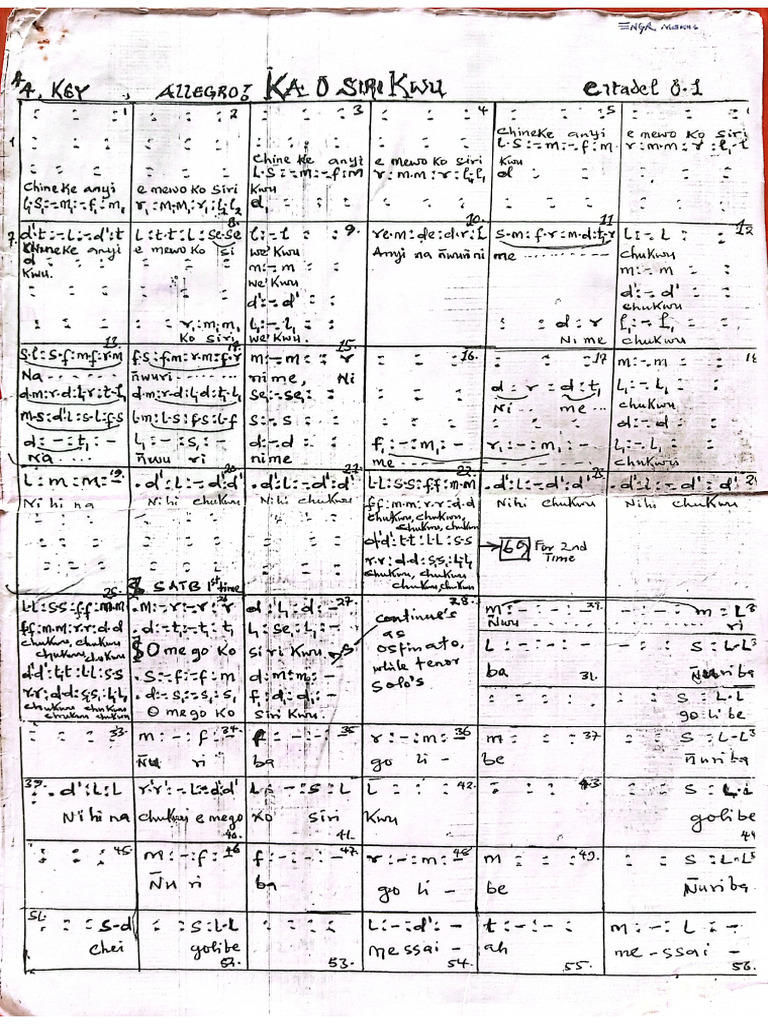 ENGR
A, KEY , ALLEGRO? KA O SIRI KWU Citadel 8.1
: : : 1 : : : 2 : : : 3 : : : 4 : : : 5 : : :
1
Chineke anyi e mewo ko siri
L.S:-m:-f:m r:m.m:r:l,-l
Chineke anyi e mewo ko siri Kwu
L.S:-m:-f:M r:m.m:r:l,l, d
Chineke anyi e mewo ko siri Kwu
L,S,:-m,:-f,:m, r,:m,.m,:r,:l,.l, d,
7. d't:-L:-d':t L:t.t:L:se.se 8. l:-l : : 9. re.m:de:d.r:L 10. s.m:f.r:m.d:t,r 11. L:-L : : 12
Chineke anyi e mewo ko si we'Kwu Anyi na ñwuñ ni me chukwu
d m:-m : : m:-m : :
Kwu. we'Kwu
d':-d' : : d':-d' : :
chukwu
: r,:m,.m, L,:-l, : : : : d:r l,:-l, : :
Ko siri we'Kwu. Ni me chukwu
13. s.l:s.f:m.f:r.m f.s:f.m:r.m:f.r m:-m: : r 15. : : : 16. : : : 17 m:-m : : 18
Na ñwuri nime, Ni
d.m:r.d:l,r:t,.l, d.m:r.d:l,d:t,.l, se:-se: : d:r=d:t, L,:-L, : :
Ni me chukwu
m.s:d'.l:s.l:f.s L.m:l.s:f.s:l.f s:-s : : d:-d : :
d:-:t,:- L,:-:s,:- d:-d f,:-:m,:- r,:-:m,:- L,:-L, : :
Na ñwu ri nime me chukwu
L:m:m:- 19. .d':L:-d':d' 20 .d':L:-d':d' 21. L.L:S.S:f.f:m.m 22. .d':L:-d':d' 23. .d':L:-d':d' 24
Ni hi na Nihi chukwu Nihi chukwu f.f:m.m:r.r:d.d Nihi chukwu Nihi chukwu
chukwu, chukwu,
chukwu, chukwu
d'.d':t.t:l.l:s.s 69 For 2nd
Time
r.r:d.d:s,s,:l,l,
chukwu, chukwu
chukwu chukwu
25. SATB 1st time
L.L:S.S:f.f:m.m .m:-r:-r:r 26 d:L,:d:- 27. 28. m:-:-:- 29. -:-:m:L
f.f:m.m:r.r:d.d .d:-t,:-t,:t, L,:se,:L,:- continue's Nwu ri
chukwu, chukwu O me go Ko siri Kwu as L:-:-:- : : S:L-L
chukwu, chukwu ostinato, ba 31. Ñuriba
d'd':t.t:l.l:s.s .S:-f:-f:m d:m:m:- while tenor
r.r:d.d:s,s,:l,l, .d:-s,:-s,:s, f,:d,:d,:- solo's : : S:L-L
chukwu chukwu O me go Ko siri Kwu. go li be
chukwu chukwu
: : : 33. m:-:f:- 34. f:-:-:- 35 r:-:m:- 36 m : : : 37 : : S:L-L
Ñu ri ba go li - be ñuriba
39. : .d':L:L r'.r':-L:d.d' L:-:S:L L : : : 42. : : : 43 : : S:L.L
Ni hi na chukwu e mego Ko siri Kwu golibe
40. 41. 44
: : : 45. m:-:f:- 46 f:-:-:- 47. r:-:m:- 48 m : : : 49. : : S:L-L
Ñu ri ba go li - be Ñuriba
51. : : : S-d : : S:L-L : : : L:-:d':- t:-:-: m:-:L:-
Chei golibe messai - ah me-ssai -
52. 53. 54. 55. 56.